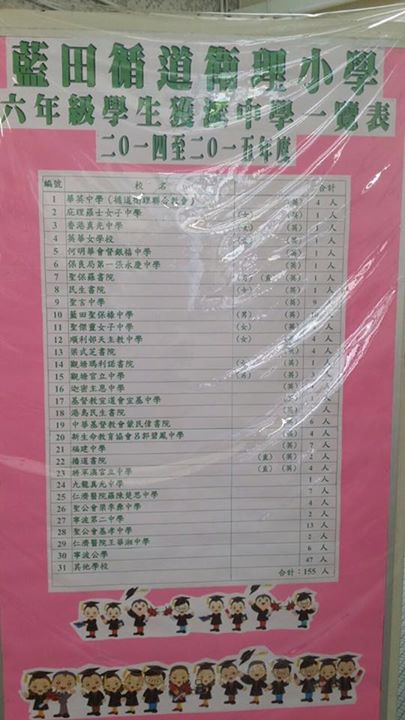 藍田循道衛理小學
六年級學生獲派中學一覽表
二〇一四至二〇一五年度
編號 校 名 合計
1 華英中學（循道衛理聯合教會） （英） 4 人
2 庇理羅士女子中學 （女） （英） 1 人
3 香港真光中學 （女） （英） 1 人
4 英華女學校 （女） （英） 1 人
5 何明華會督銀禧中學 （英） 1 人
6 保良局第一張永慶中學 （英） 1 人
7 聖保羅書院 （男） （直） （英） 1 人
8 民生書院 （英） 1 人
9 聖言中學 （英） 9 人
10 藍田聖保祿中學 （英） 人
11 聖傑靈女子中學 （女） （英） 人
12 順利邨天主教中學 （英） 4 人
13 梁式芝書院 （英） 4 人
14 觀塘瑪利諾書院 （英） 人
15 觀塘官立中學 （英） 人
16 迦密主恩中學 （英） 人
17 基督教宣道會宣基中學 （英） 人
18 港島民生書院 （英） 人
19 中華基督教會蒙民偉書院 （英） 6 人
20 新生命教育協會呂郭碧鳳中學 （英） 4 人
21 福建中學 （英） 7 人
22 循道書院 （直） （英） 2 人
23 將軍澳官立中學 （直） （英） 4 人
24 九龍真光中學 人
25 仁濟醫院羅陳楚思中學 7 人
26 聖公會梁季彝中學 4 人
27 寧波第二中學 2 人
28 聖公會基孝中學 13 人
29 仁濟醫院王華湘中學 2 人
30 寧波公學 6 人
31 其他學校 47 人
合計：155 人